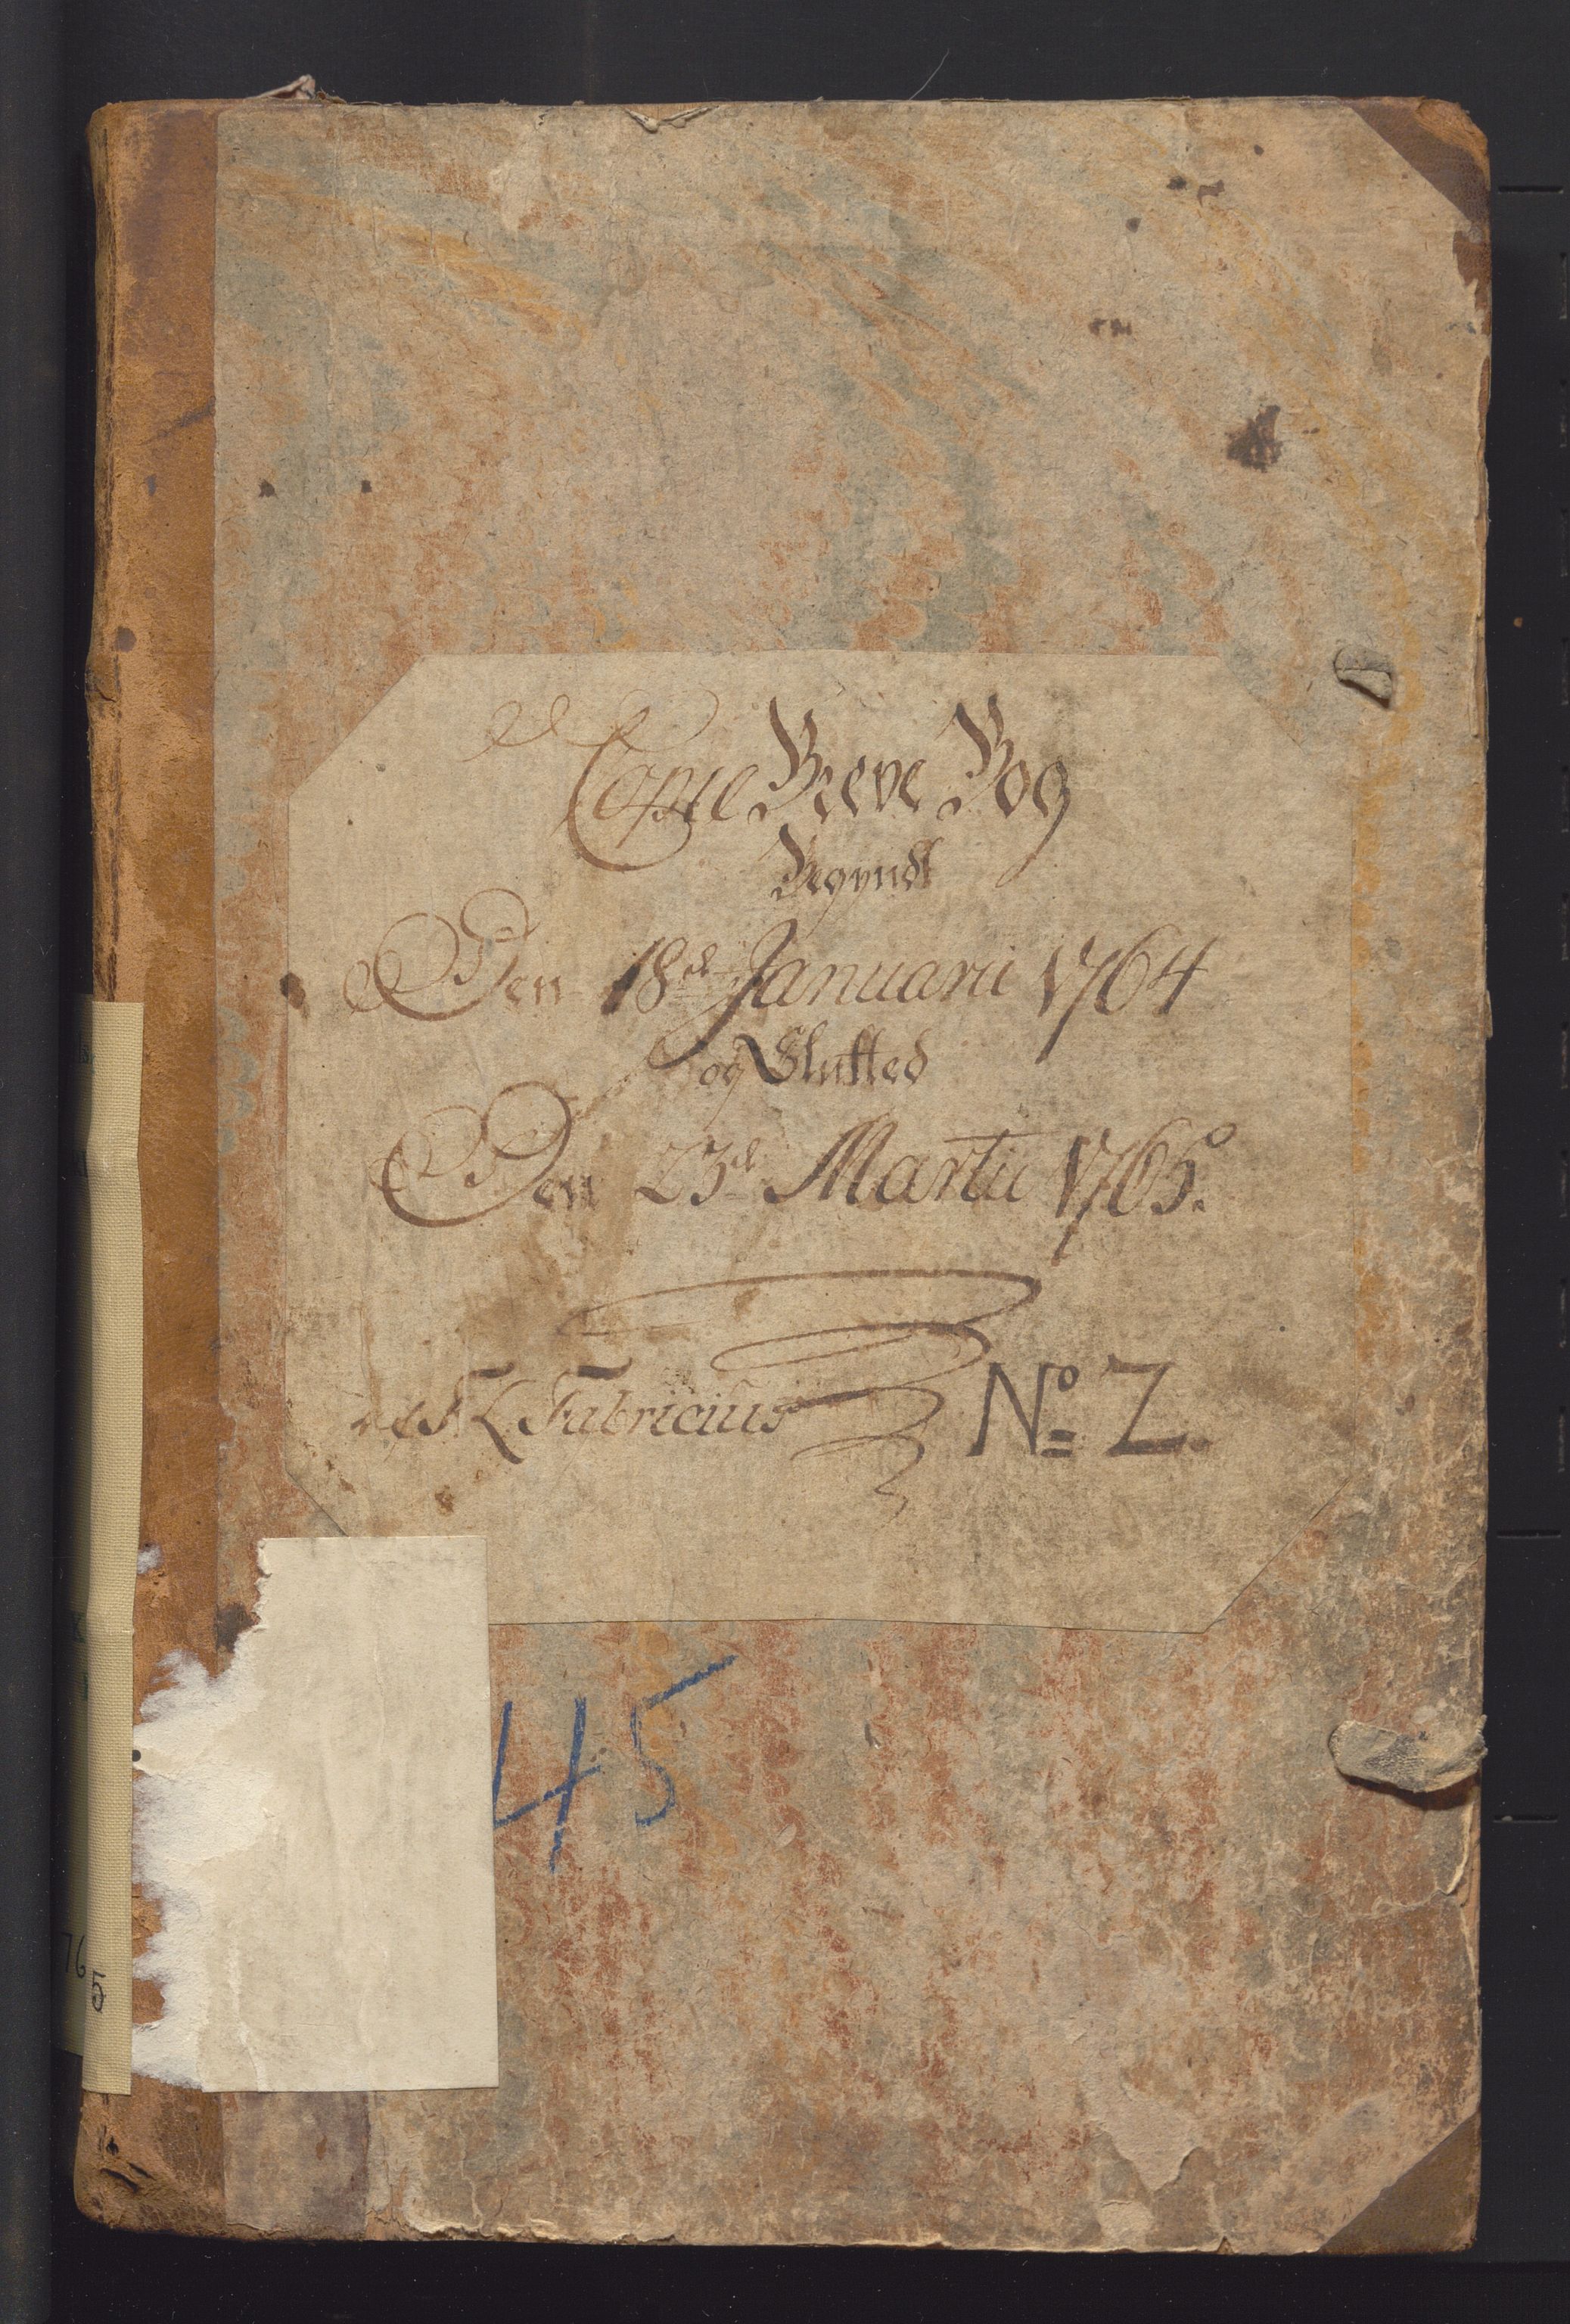 Copie Breve Bog
Begyndt
Den 18de Januarii 1764
og Slutted
Den 23de Martii 1765.
Fabricius
No Z
45
76
5